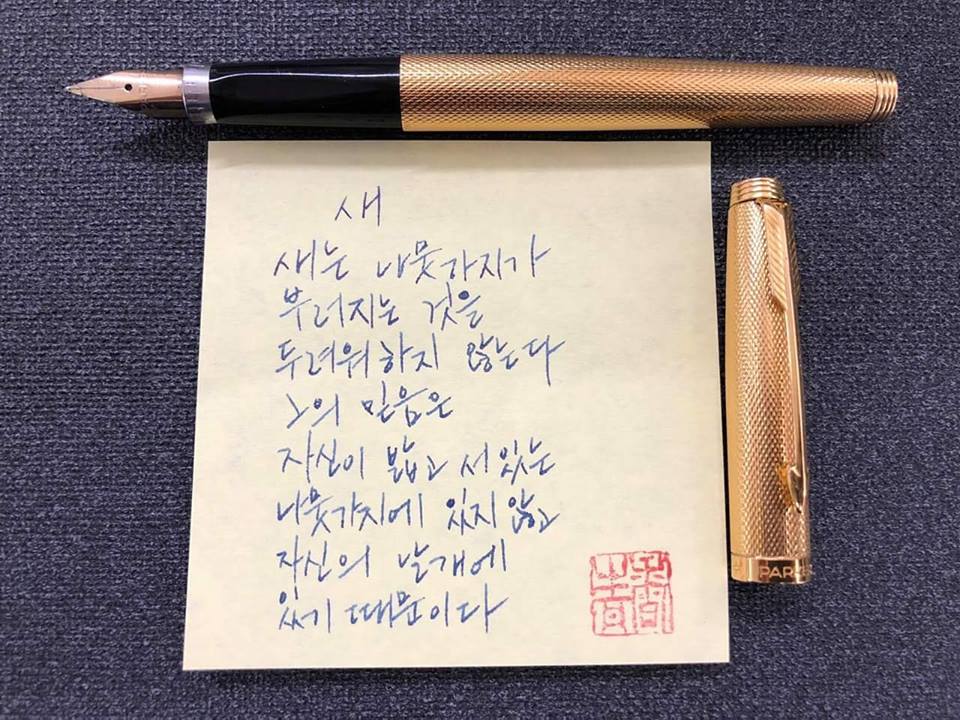 새
새는 나뭇가지가
부러지는 것을
두려워하지 않는다
그의 믿음은
자신이 밟고 서 있는
나뭇가지에 있지 않고
자신의 날개에
있기 때문이다
PARK